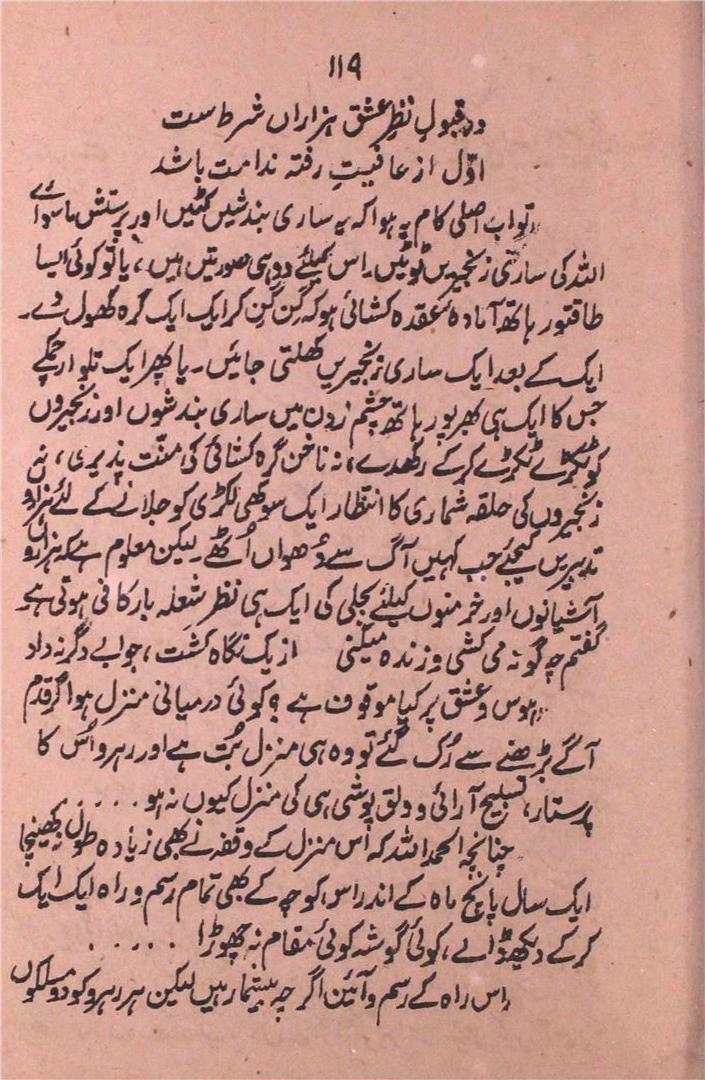 ۱۱۹
در قبولِ نظرِ عشق ہزاراں شرط ست
اوّل از عافیتِ رفتہ ندامت باشد
"تو اب اصلی کام یہ ہوا کہ یہ ساری بندشیں کٹیں اور پرستش ماسوائے
اللہ کی ساری زنجیریں ٹوٹیں۔ اس کیلئے دو ہی صورتیں ہیں، یا تو کوئی ایسا
طاقتور ہاتھ آمادہ عقدہ کشائی ہو کہ گن گن کر ایک ایک گرہ کھول دے۔
ایک کے بعد ایک ساری زنجیریں کھلتی جائیں۔ یا پھر ایک تلوار چمکے
جس کا ایک ہی بھرپور ہاتھ چشم زدن میں ساری بندشوں اور زنجیروں
کو ٹکڑے ٹکڑے کر کے رکھدے، نہ ناخن گرہ کشائی کی منّت پذیری، نہ
زنجیروں کی حلقہ شماری کا انتظار ایک سوکھی لکڑی کو جلانے کے لئے ہزاروں
تدبیریں کیجئے جب کہیں آگ سے دُھواں اُٹھے۔ لیکن معلوم ہے کہ ہزاروں
آشیانوں اور خرمنوں کیلئے بجلی کی ایک ہی نظرِ شعلہ بار کافی ہوتی ہے۔
گفتم چہ گونہ می کشی و زندہ میکنی از یک نگاہ کشت، جوابے دگر نہ داد
"ہوس و عشق پر کیا موقوف ہے؟ کوئی درمیانی منزل ہو اگر قدم
آگے بڑھنے سے رُک گئے تو وہ ہی منزل بُت ہے اور رہرو اُس کا
پرستار، تسبیح آرائی و دلق پوشی ہی کی منزل کیوں نہ ہو . . . .
چنانچہ الحمدللہ کہ اس منزل کے وقفہ نے بھی زیادہ طول نہ کھینچا
ایک سال پانچ ماہ کے اندر اس کوچہ کے بھی تمام رسم و راہ ایک ایک
کر کے دیکھ ڈالے، کوئی گوشہ کوئی مقام نہ چھوڑا . . . . .
اس راہ کے رسم و آئین اگرچہ بیشمار ہیں لیکن ہر رہرو کو دو مسلکوں